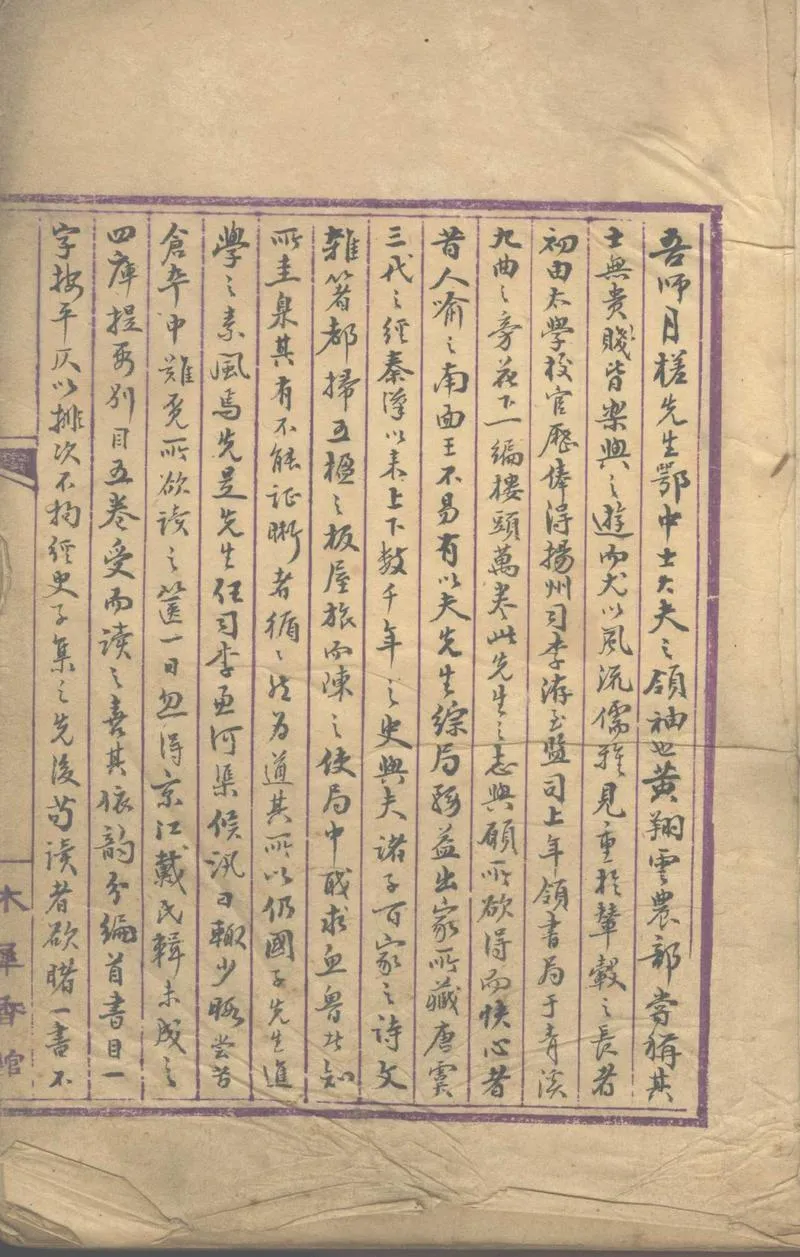 吾師月槎先生鄂中士大夫之領袖也黃翔雲農部嘗稱其
士無貴賤皆樂與之遊而尤以風流儒雅見重於輦轂之長者
初由太學校官歷俸得揚州司李洊至監司上年領書局于青溪
九曲之旁花下一編樓頭萬卷此先生之志與願所欲得而快心者
昔人喻之南面王不易有以夫先生綜局務益出家所藏唐虞
三代之經秦漢以來上下數千年之史與夫諸子百家之詩文
雜著都掃五楹之板屋旅而陳之使局中職求亥魯者知
所圭臬其有不能証晰者循循然為道其所以仍國子先生進
學之素風焉先是先生任司李函河渠候汛日輒少暇嘗苦
倉卒中難覓所欲讀之篋一日忽得京江戴氏輯未成之
四庫提要別目五卷受而讀之喜其依韵分編首書目一
字按平仄以排次不拘經史子集之先後苟讀者欲睹一書不
木犀香館